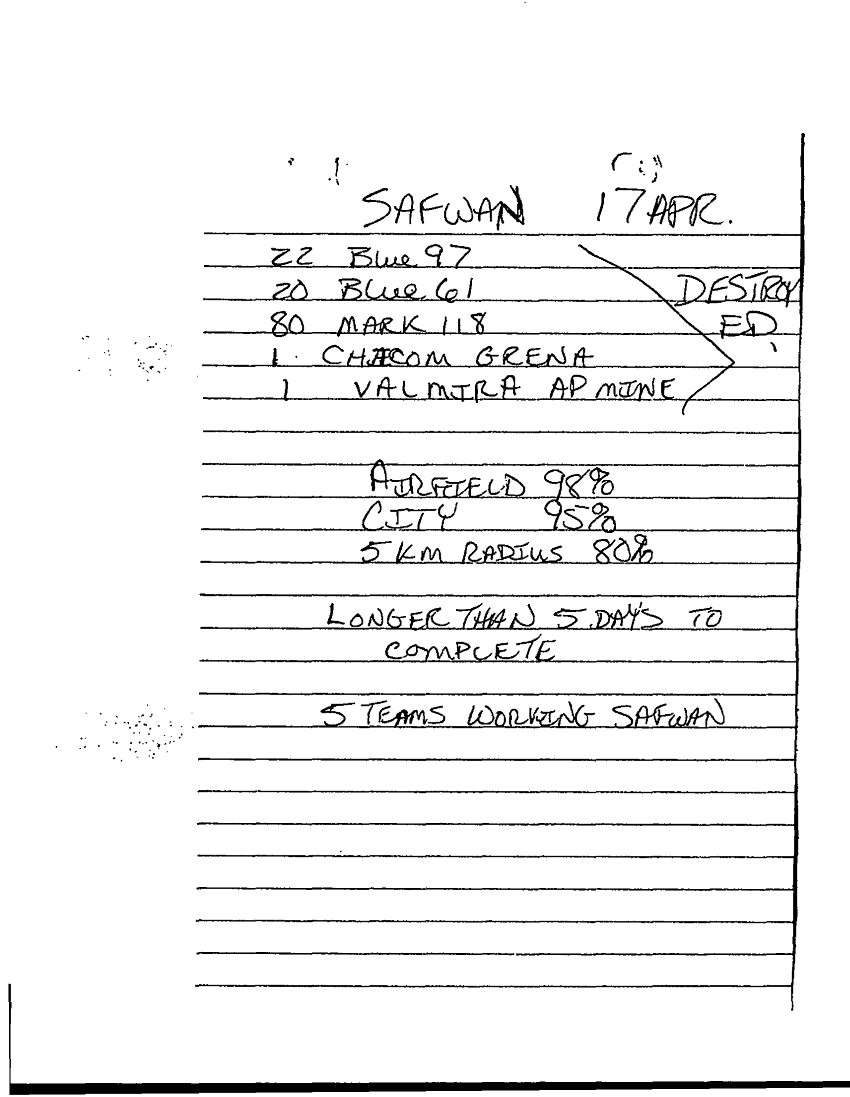 SAFWAN 17 APR.
22 Blue 97
20 Blue 61
80 MARK 118
1 GRENA
1 VALMIRA AP MINE
DESTROY
ED
AIRFIELD 98%
CITY 95%
5 KM RADIUS 80%
LONGER THAN 5 DAYS TO
COMPLETE
5 TEAMS WORKING SAFWAN